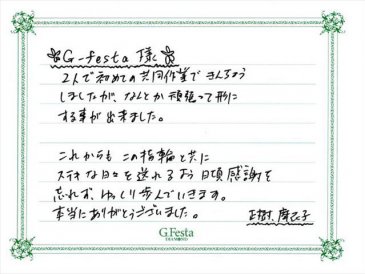 G-festa 様
2人で初めての共同作業できんちょう
しましたが、なんとか頑張って形に
する事が出来ました。
これからも この指輪と共に
ステキな日々を送れるよう 日頃感謝を
忘れず、ゆっくり歩んでいきます。
本当にありがとうございました。
正樹、摩衣子
G.Festa
DIAMOND